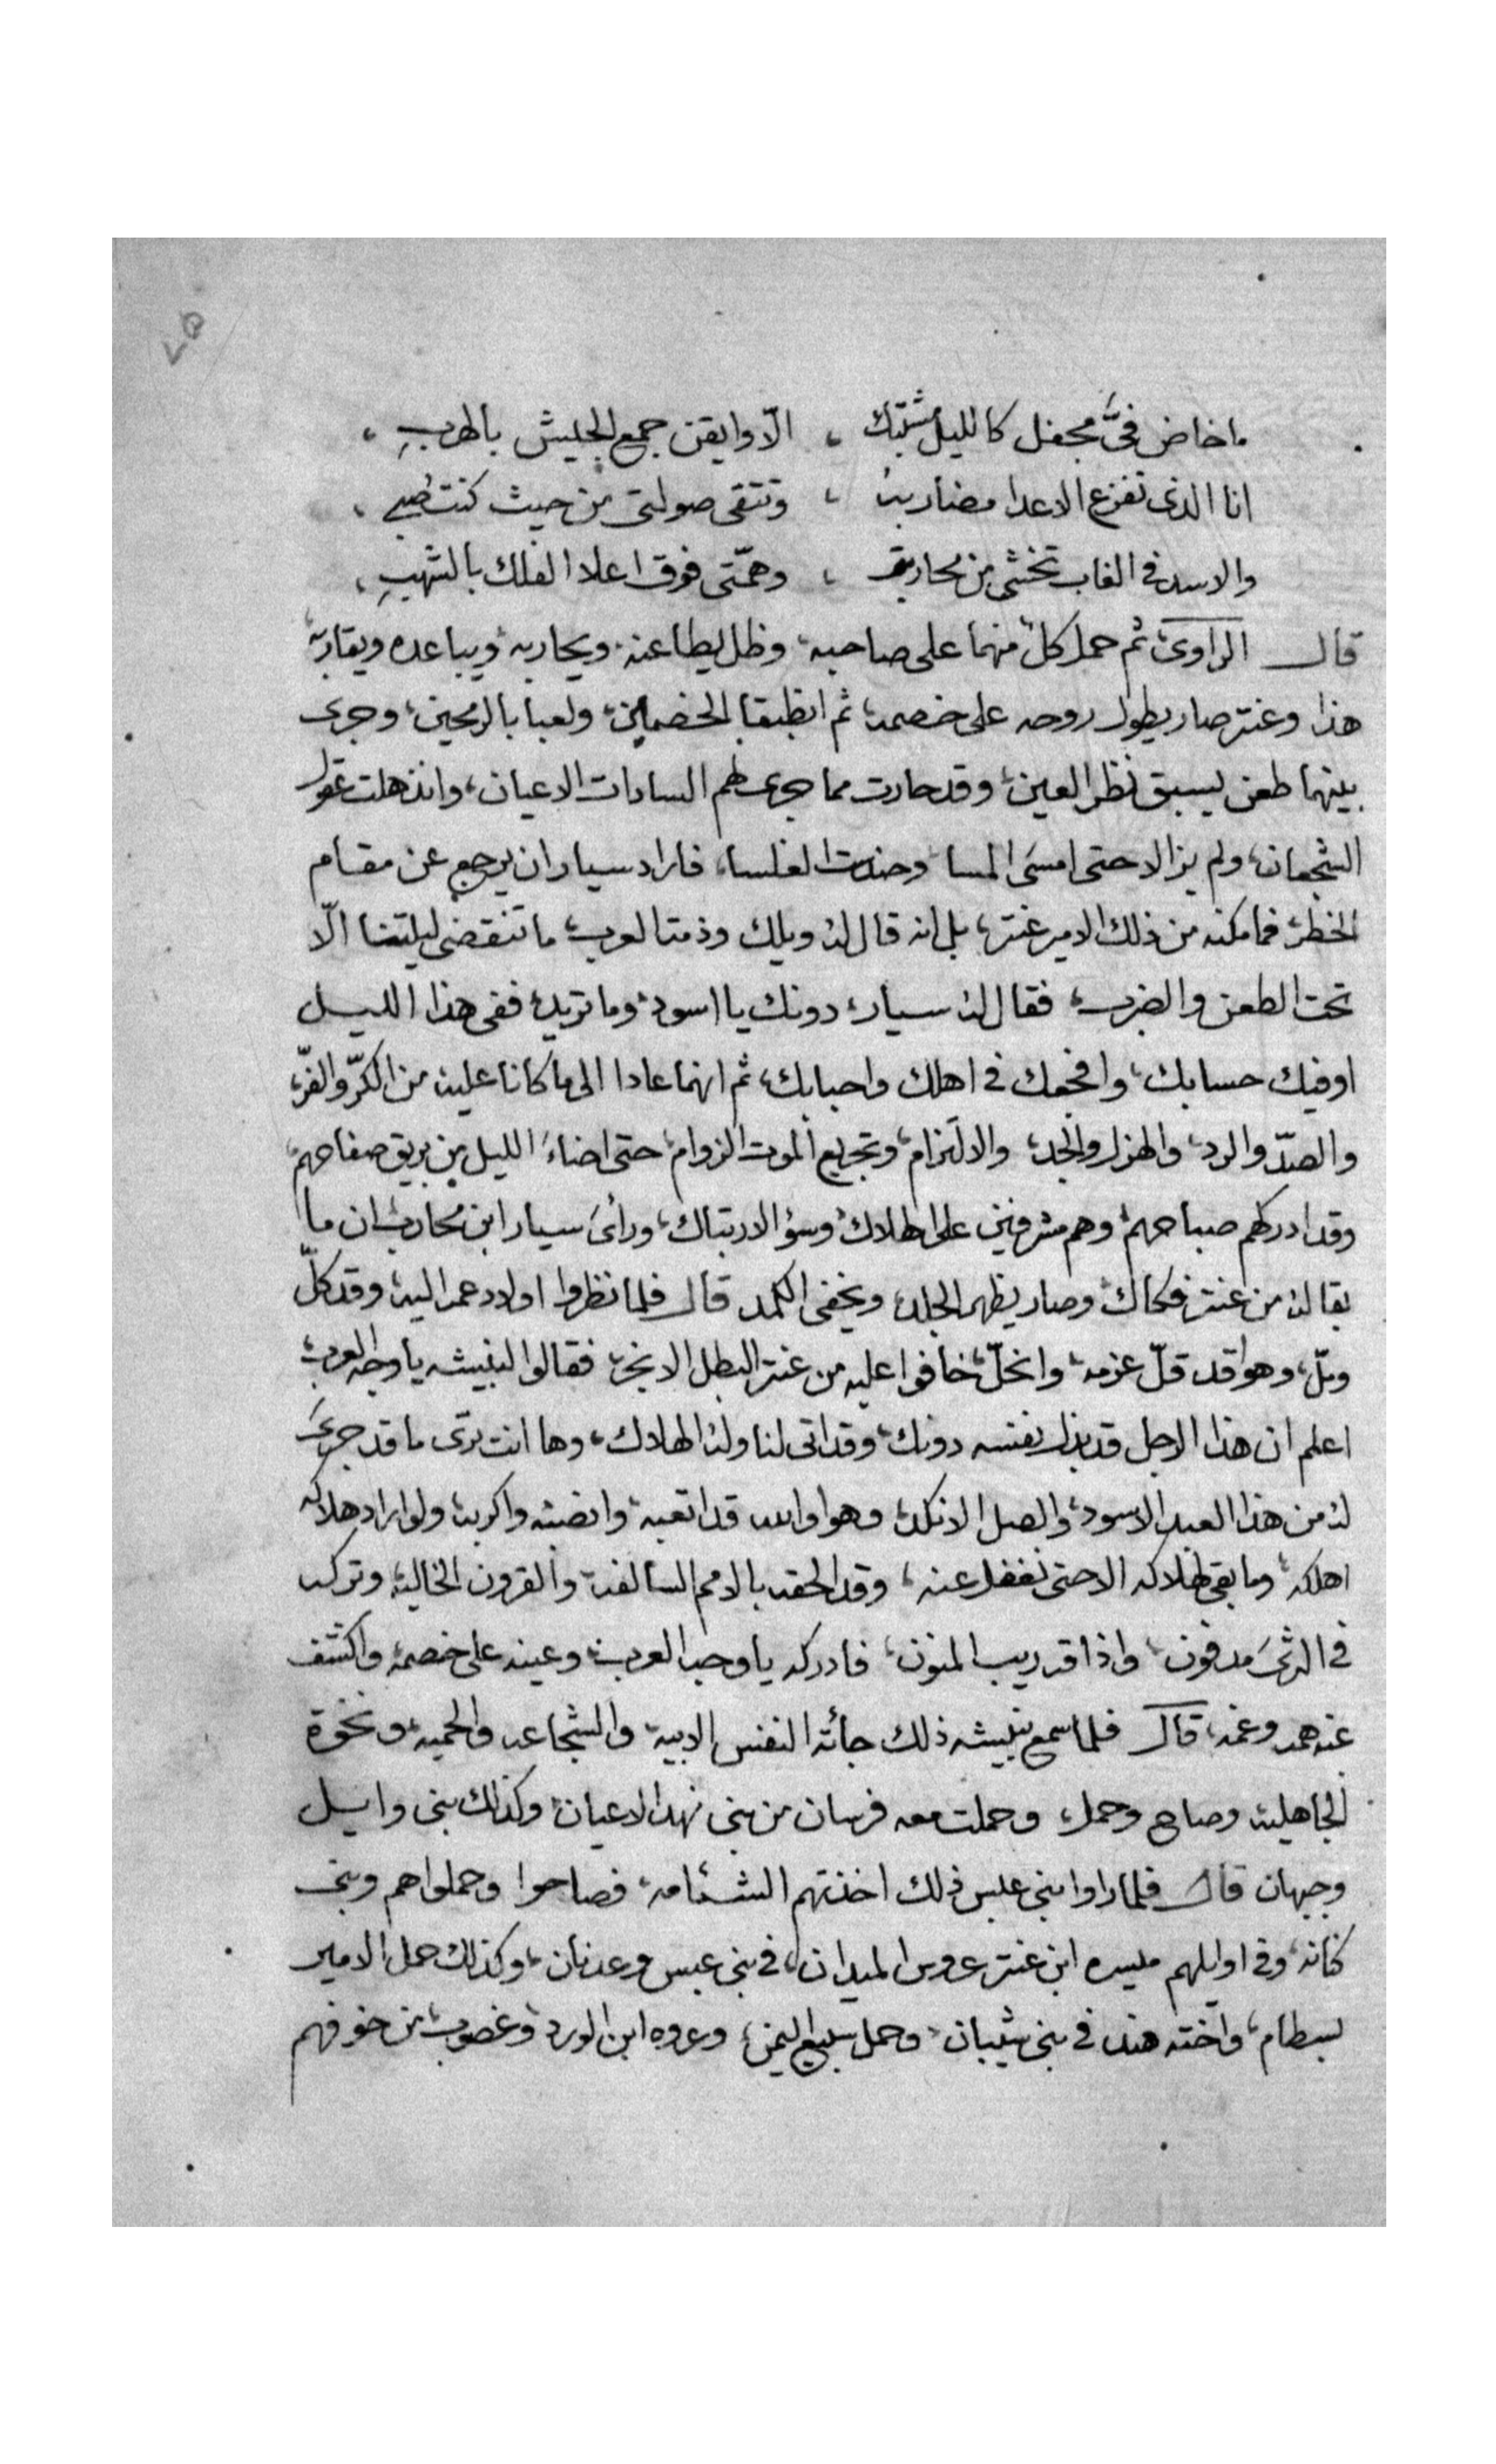 ٧٥
ما خاض فىَّ محجفل كالليل مشتبك ، الّا وايقن جمع الجيش بالهربِ ،
انا الذى تفزع الاعدا مضاربهُ ، وتتقى صولتى من حيث كنت
والاسد فى الغاب تخشى من محاربتى ، وهمّتى فوق اعلا الفلك بالشهبِ ،
قال الراوى ثم حمل كل منهما على صاحبه، وظل يطاعنه، ويحاربه ويباعده ويقاربه
هذا وعنتر صار يطول روحه على خصمه، ثم انطبقا الخصمين، ولعبا بالرمحين، وجرى
بينهما طعن يسبق نظر العين، وقد حارت مما جرى لهم السادات الاعيان، وانذهلت عقول
الشجعان، ولم يزالا حتى امسى المسا وخندت الغلسا، فاراد سيار ان يرجع عن مقام
الخطر، فما مكنه من ذلك الامير عنتر، بل انه قال له ويلك وذمت العرب، ما تنقضى ليلتنا الّا
تحت الطعن والضرب، فقال له سيار، دونك يا اسود، وما تريد، ففى هذا الليل
اوفيك حسابك، وافجعك فى اهلك واحبابك، ثم انهما عادا الى ما كانا عليه من الكرّ والفرّ،
والصدّ والرد، والهزل والجد، والالتزام، وتجريع الموت الزوام، حتى اضاء الليل من بريق صفاحهم،
وقد ادركهم صباحهم، وهم مشرفين على الهلاك، وسؤ الارتباك، ورأى سيار ابن محارب، ان ما
بقا له من عنتر فكاك، وصار يظهر الجلد، ويخفى الكمد قال فلما نظروا اولاد عمه اليه، وقد كلّ
وملّ، وهوا قد قلّ عزمه، وانحلّ، خافوا عليه من عنتر البطل الانجر، فقالوا لبنيشه يا وجه العرب
اعلم ان هذا الرجل قد بذل نفسه دونك، وقد اتى لنا وله الهلاك، وها انت ترى ما قد جرى
له من هذا العبد الاسود، والصل الانكد، وهوا والله قد اتعبه، وانصبه واكربه، ولو اراد هلاكه
اهلكه، وما بقى لهلاكه الا حتى نغفل عنه، وقد الحقه بالامم السالفة، والقرون الخالية، وتركه
فى الثرى مدفون، واذاقه ريب المنون، فادركه يا وجه العرب، وعينه على خصمه، واكشف
عنه همه وغمه، قال فلما سمع بنيشه ذلك جأته النفس الابيه، والشجاعه والحميه، ونخوة
الجاهلية، وصاح وحمل، وحملت معه فرسان من بنى نهد الاعيان، وكذلك بنى وايل
وجهان قال فلما راوا بنى عبس ذلك اخذتهم الشئامه، فصاحوا وحملوا هم وبنى
كنانه، وفى اوايلهم ميسره ابن عنتر عروس الميدان، فى بنى عبس وعدنان، وكذلك حمل الامير
بسطام، واخته هند فى بنى شيبان، وحمل سبيع اليمن، وعروه ابن الورد، وغصوب، من خوفهم